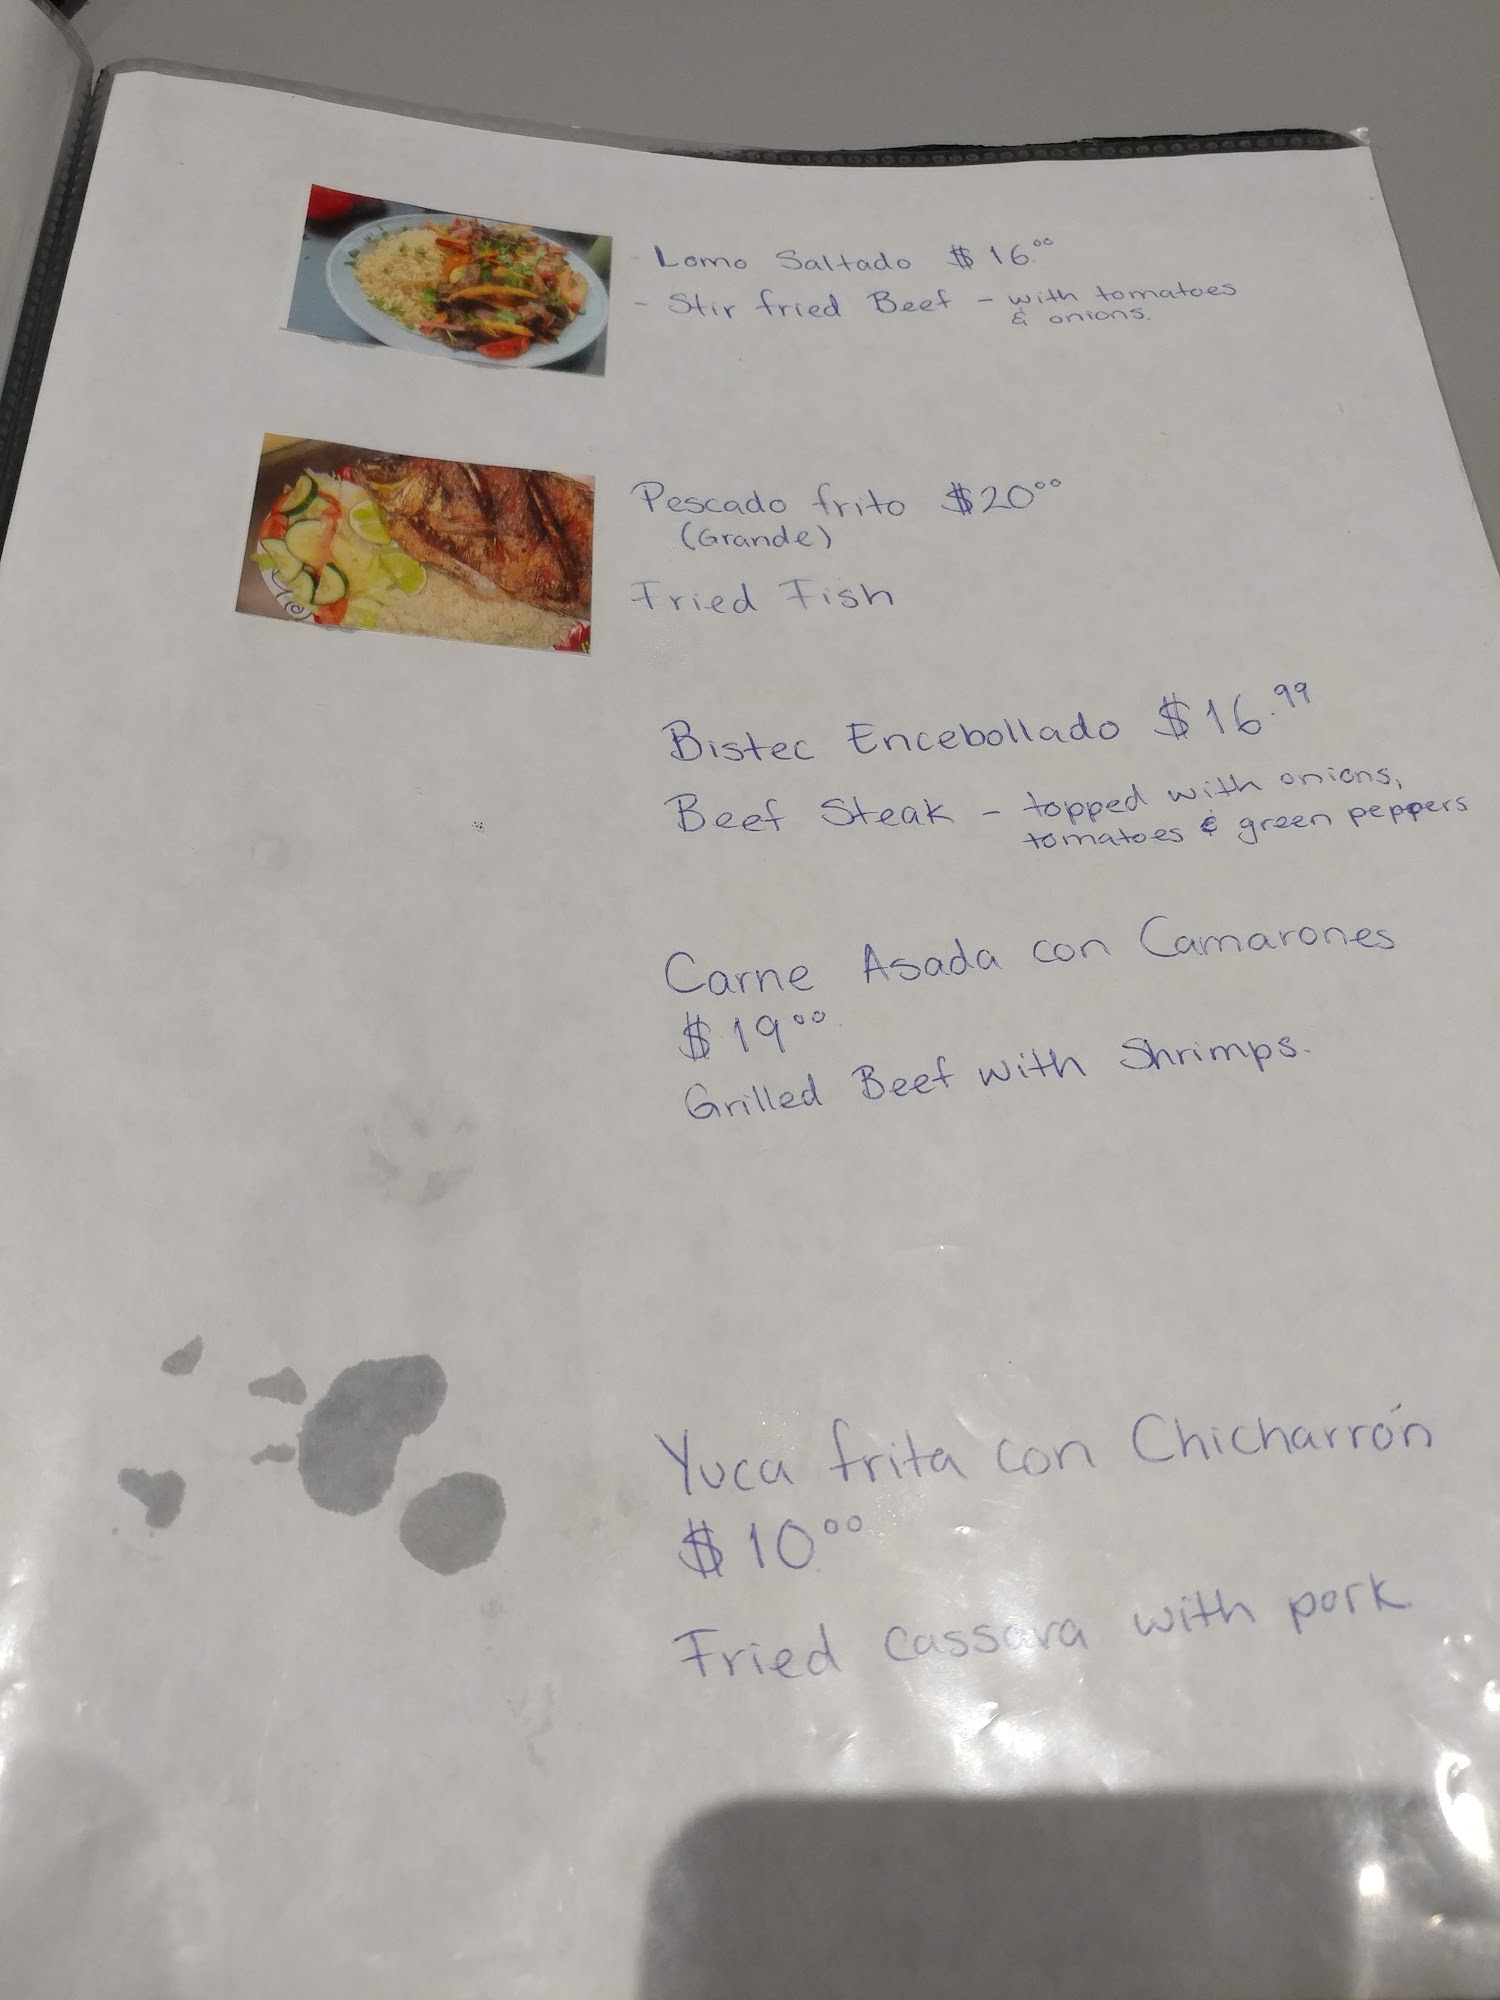 - Lomo Saltado $16.00
- Stir fried Beef - with tomatoes
& onions.
Pescado frito $20.00
(Grande)
Fried Fish
Bistec Encebollado $16.99
Beef Steak - topped with onions,
tomatoes & green peppers
Carne Asada con Camarones
$19.00
Grilled Beef with Shrimps.
Yuca frita con Chicharrón
$10.00
Fried cassava with pork